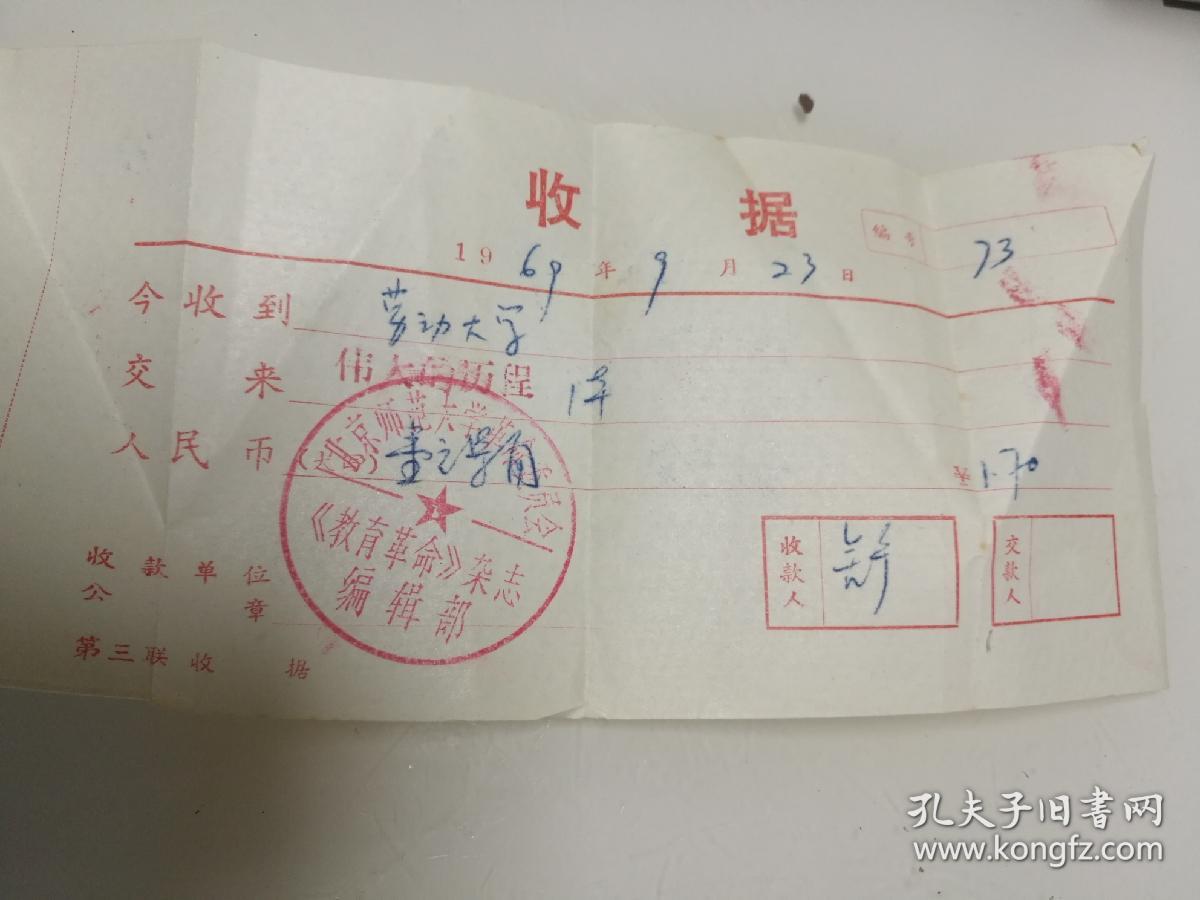 收 据
编号 73
1969年9月23日
今收到 劳动大学
交来 伟大的历程 1本
人民币 壹元柒角 ¥1.70
北京师范大学革命委员会
《教育革命》杂志
编辑部
收款人
交款人
收款单位
公章
第三联收据
孔夫子旧书网
www.kongfz.com